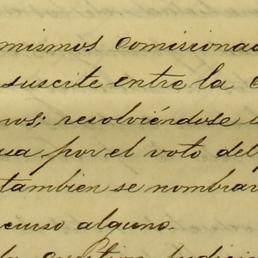 mismos comisionad
suscite entre la
nos; resolviéndose
ua por el voto del
tambien se nombrar
curso alguno.